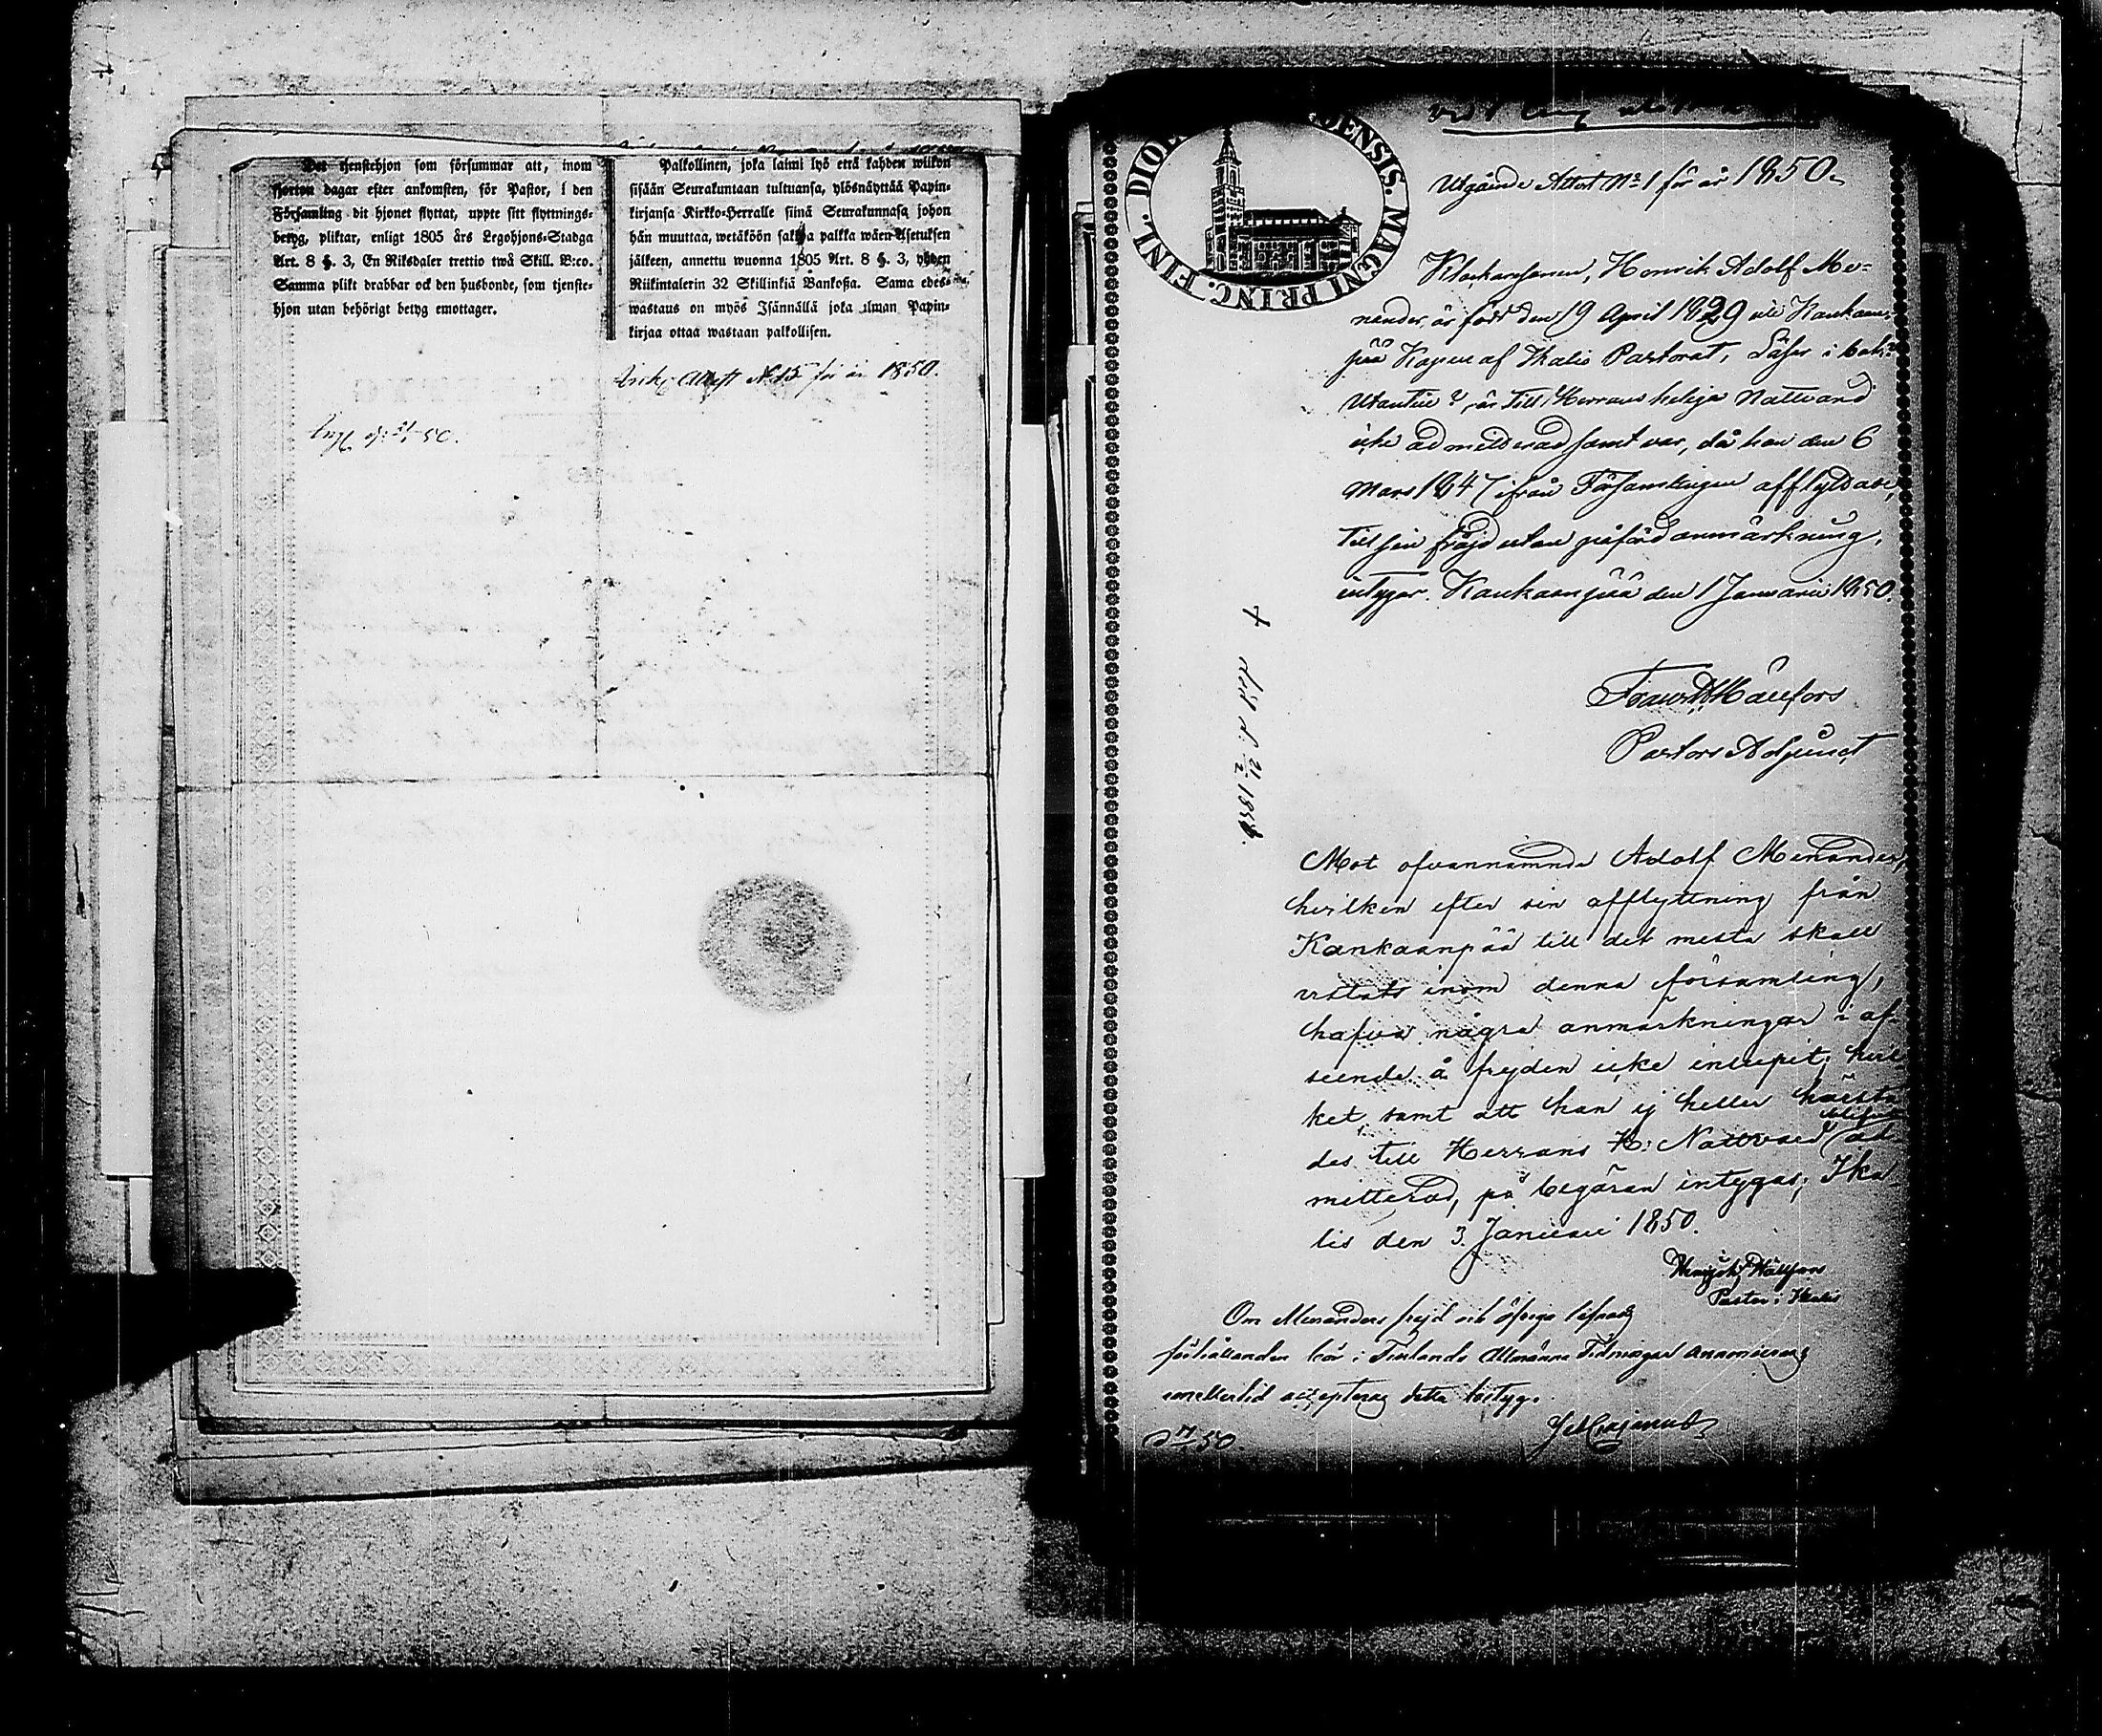 Det tjenstehjon som försummar att, inom
fjorton dagar efter ankomsten, för Pastor, i den
Församling dit hjonet flyttat, uppte sitt flyttnings-
betyg, pliktar, enligt 1805 års Legohjons-Stadga
Art. 8 §. 3, En Riksdaler trettio twå Skill. B:co.
Samma plikt drabbar ock den husbonde, som tjenste-
hjon utan behörigt betyg emottager.
Palkollinen, joka laimi lyö että kahden wiikon
sisään Seurakuntaan tultuansa, ylösnäyttää Papin-
kirjansa Kirkko-Herralle siinä Seurakunnasa johon
hän muuttaa, wetäköön sakkoa palkka wäen Asetuksen
jälkeen, annettu wuonna 1805 Art. 8 §. 3, yhden
Riikintalerin 32 Skillinkiä Bankossa. Sama edes-
wastaus on myös Isännällä joka ilman Papin-
kirjaa ottaa wastaan palkollisen.
Attest N:15 för år 1850.
FINL. DIOE ENSIS. MAGNI PRINC.
Utgående Attest No 1 för år 1850.
Klockaresonen, Henrik Adolf Me-
nander, är född den 19 April 1829 uti Kankaan-
pää Kapell af Ikalis Pastorat, Läser i bok
Utantill är till Herrans heliga Nattvard
icke admitterad samt var, då han den 6
Mars 1847 ifrån Församlingen afflyttade,
till sin fräjd utan påförd anmärkning,
intygar. Kankaanpää den 1 Januarii 1850.
Hällfors
Pastors Adjunct
1850.
Mot ofvannämnde Adolf Menander,
hvilken efter sin afflyttning från
Kankaanpää till det mesta skall
vistats inom denna församling,
hafva några anmärkningar i af-
seende å frejden icke inlupit; hvil-
ket, samt att han ej heller härstä-
des till Herrans H: Nattvard blifvit ad-
mitterad, på begäran intygas; Ika-
lis den 3. Januarii 1850.
Hällfors
Pastor i Ikalis
Om Menanders frejd och öfriga lefnads
förhållanden bör i Finlands Allmänna Tidningar annonceras
emellertid accepteras detta betyg.